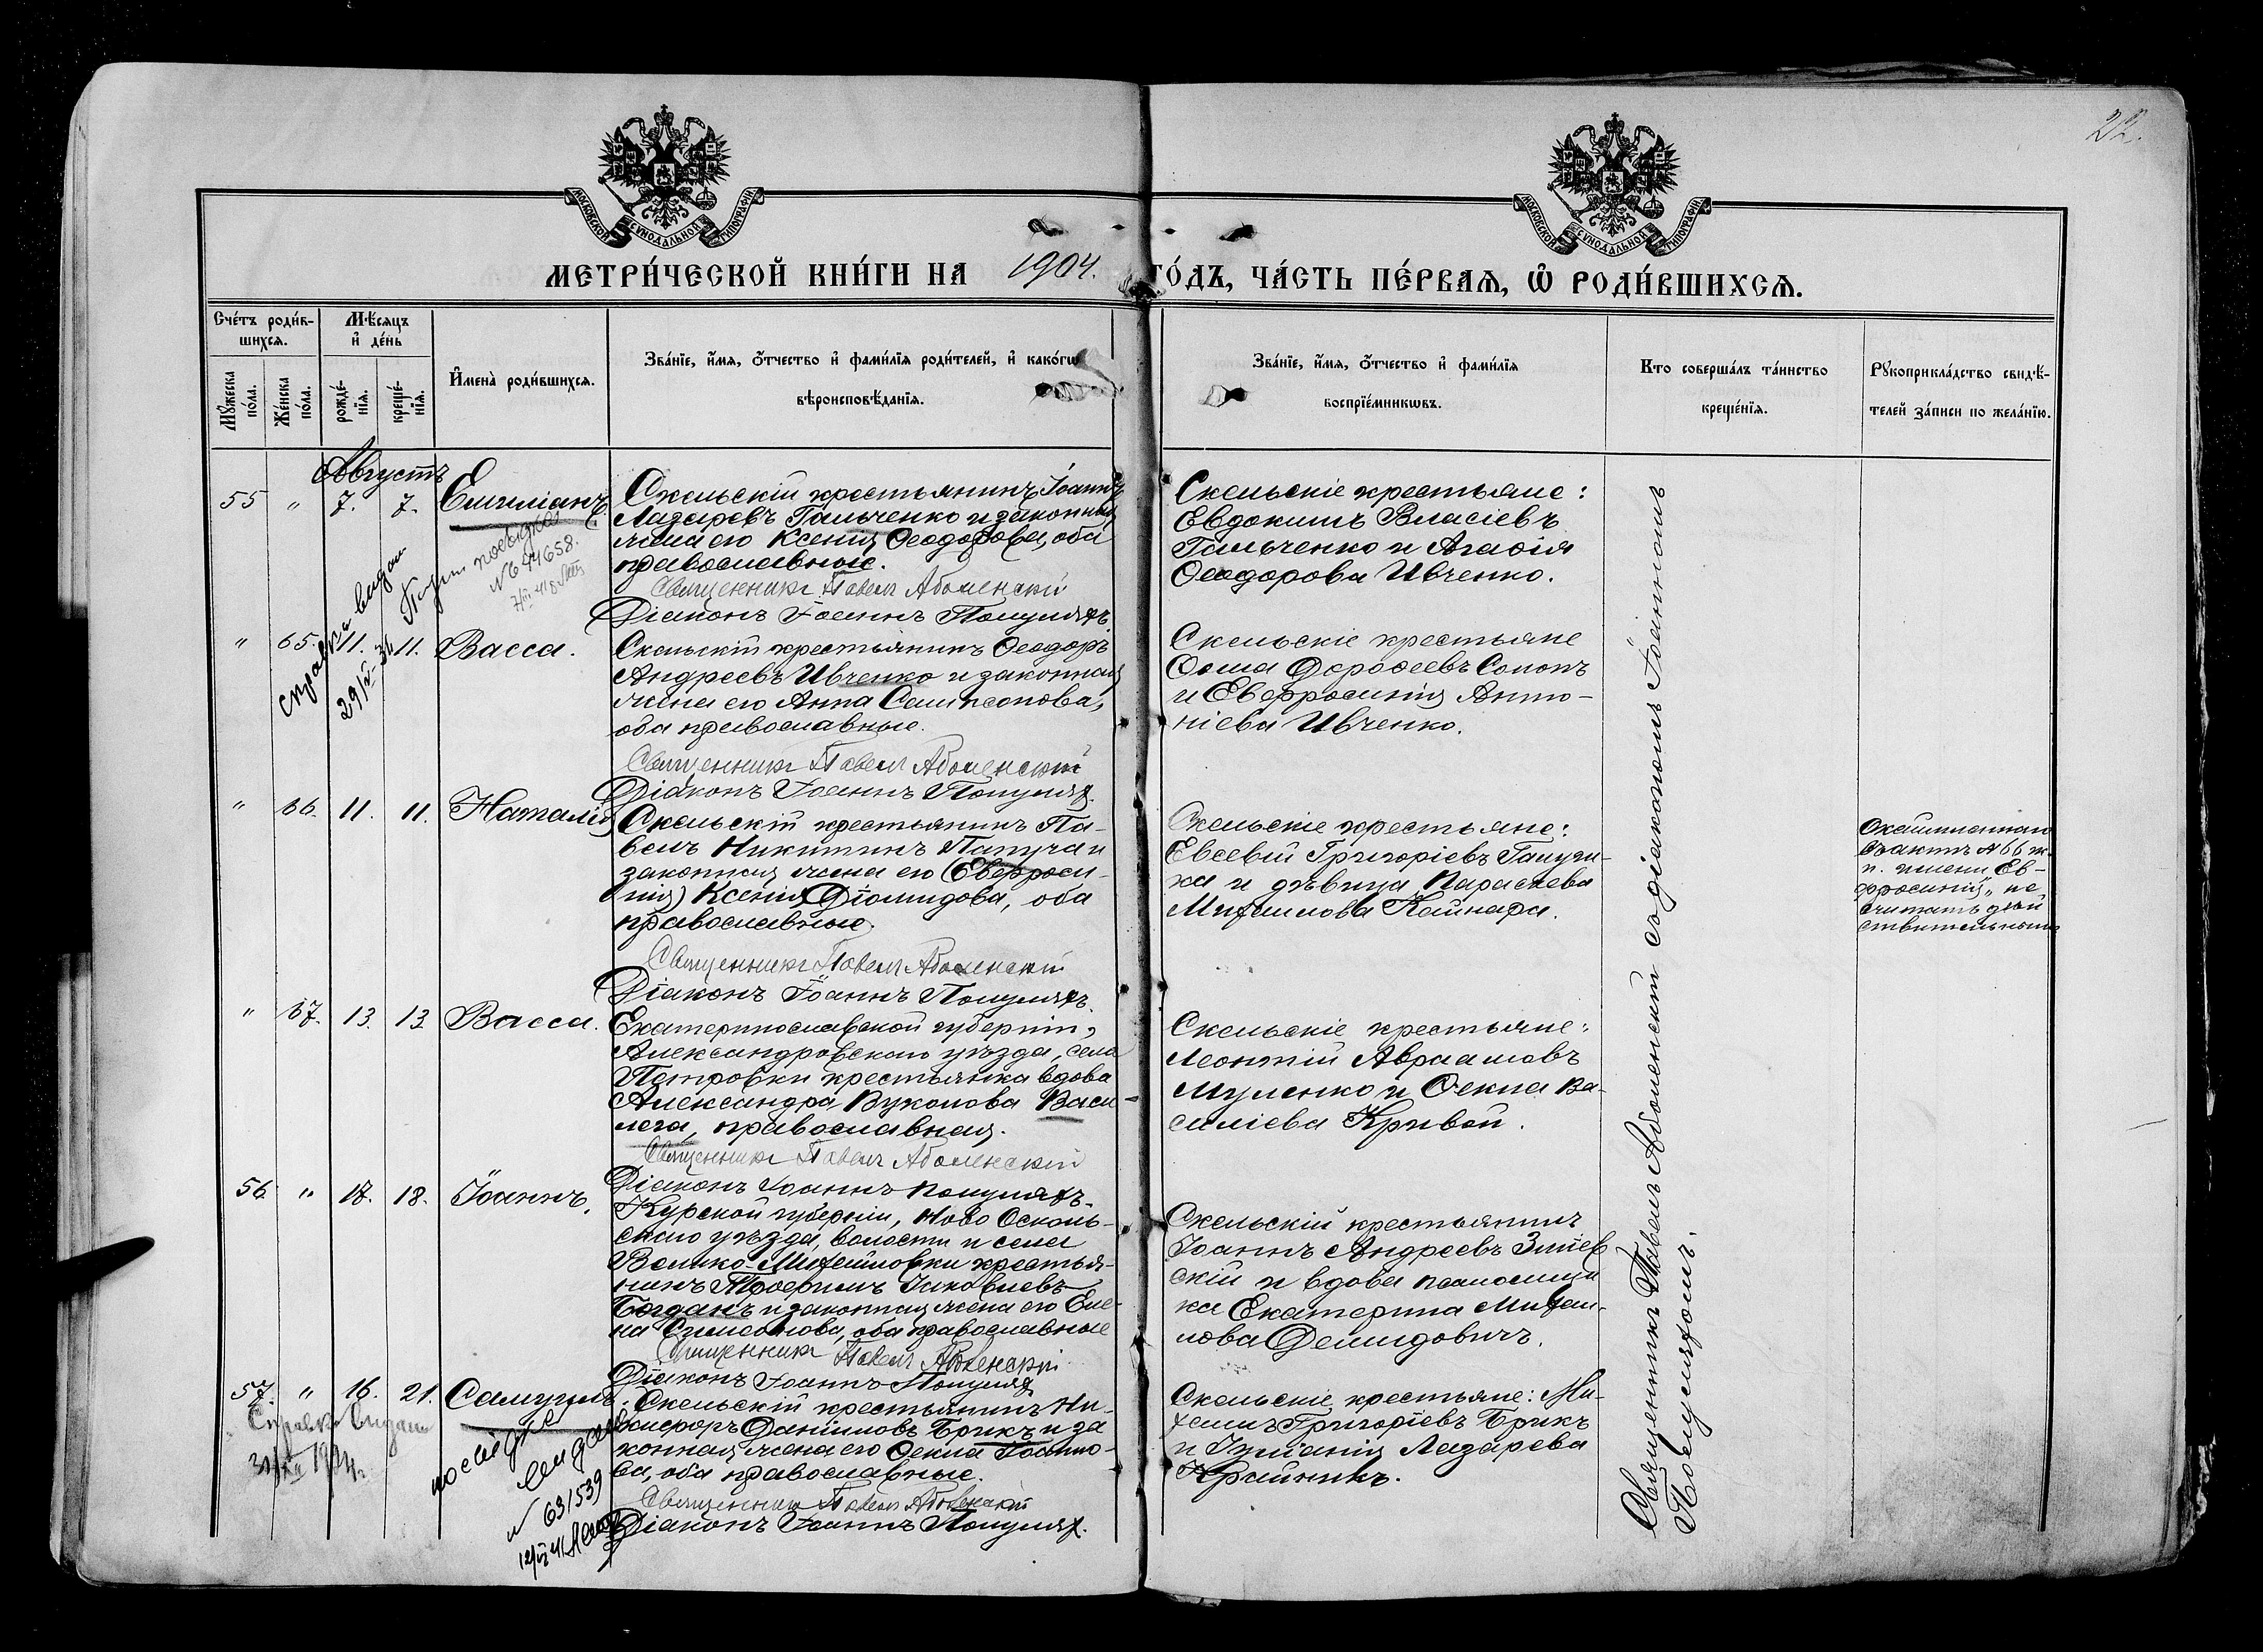 22.
МОСКОВСКОЙ СѴНОДАЛЬНОЙ ТИПОГРАФІИ
МОСКОВСКОЙ СѴНОДАЛЬНОЙ ТИПОГРАФІИ
МЕТРИ́ЧЕСКОЙ КНИ́ГИ НА 1904. ГО́ДЪ, ЧА́СТЬ ПЕ́РВАѦ, Ѽ РОДИ́ВШИХСѦ.
Сче́тъ роди́в-
шихсѧ.
Мꙋ́жеска по́ла.
Же́нска по́ла.
Мѣ́сѧцъ
и҆ де́нь
рожде́-
нїѧ.
креще́-
нїѧ.
И҆мена̀ роди́вшихсѧ.
Зва́нїе, и҆́мѧ, ѻ҆́тчество и҆ фами́лїѧ роди́телей, и҆ како́гѡ
вѣроисповѣ́данїѧ.
Зва́нїе, и҆́мѧ, ѻ҆́тчество и҆ фами́лїѧ
воспрїе́мникѡвъ.
Кто соверша́лъ та́инство
креще́нїѧ.
Рꙋкоприкла́дство свидѣ́-
телей за́писи по жела́нїю.
Августъ
55 " 7. 7. Емиліанъ.
Скельскій крестьянинъ Іоаннъ
Лазаревъ Гальченко и законная
жена его Ксенія Ѳеодорова, оба
православные.
Священникъ Павелъ Абоменскій
Діаконъ Іоаннъ Полуляхъ.
Скельскіе крестьяне:
Евдокимъ Власіевъ
Гальченко и Агафія
Ѳеодорова Ивченко.
№ 644658.
справка выдан
" 65. 11. 11. Васса.
Скельскій крестьянинъ Ѳеодоръ
Андреевъ Ивченко и законная
жена его Анна Сампсонова,
оба православные.
Священникъ Павелъ Абоменскій
Діаконъ Іоаннъ Полулях.
Скельскіе крестьяне
Ѳома Дороѳеевъ Сопонъ
и Евфросинія Анто-
ніева Ивченко.
" 66. 11. 11. Наталія
Скельскій крестьянинъ Па-
велъ Никитинъ Папуча и
законная жена его (Евфроси-
нія) Ксенія Діомидова, оба
православные.
Священникъ Павелъ Абоменскій
Діаконъ Іоаннъ Полуляхъ.
Скельскіе крестьяне:
Евсевій Григоріевъ Галуш-
ка и дѣвица Параскева
Михаилова Кайнара.
актѣ № 66 ж.
п. имени Ев-
фросинія, не
считать дѣй
ствительнымъ
" 67. 13. 13 Васса.
Екатеринославской губерніи,
Александровскаго уѣзда, села
Петровки крестьянка вдова
Александра Вуколова Васи-
лега, православная.
Священникъ Павелъ Абоменскій
Діаконъ Іоаннъ Полуляхъ.
Скельскіе крестьяне:
Леонтій Авраамовъ
Муленко и Ѳекла Ва-
силіева Кривой.
56 " 17. 18. Іоаннъ.
Курской губерніи, Ново Осколь-
скаго уѣзда, волости и села
Велико-Михайловки крестья-
нинъ Трофимъ Іаковлевъ
Богданъ и законная жена его Еле-
на Симеонова, оба православные
Священникъ Павелъ Абоменскій
Діаконъ Іоаннъ Полулях
Скельскій крестьянинъ
Іоаннъ Андреевъ Зміев
скій и вдова псаломщи
ка Екатерина Михаи-
лова Демидовичъ.
57. " 16. 21. Самуилъ.
Скельскій крестьянинъ Ни-
кифоръ Даніиловъ Брикъ и за
конная жена его Ѳекла Іоанно-
ва, оба православные.
Священникъ Павелъ Абоменскій
Діаконъ Іоаннъ Полулях.
Скельскіе крестьяне: Ми-
хаилъ Григоріевъ Брикъ
и Іуліанія Лазарева
Крайникъ.
Справка выдана
№ 631539
Священникъ Павелъ Абоменскій съ діакономъ Іоанномъ
Полуляхомъ.